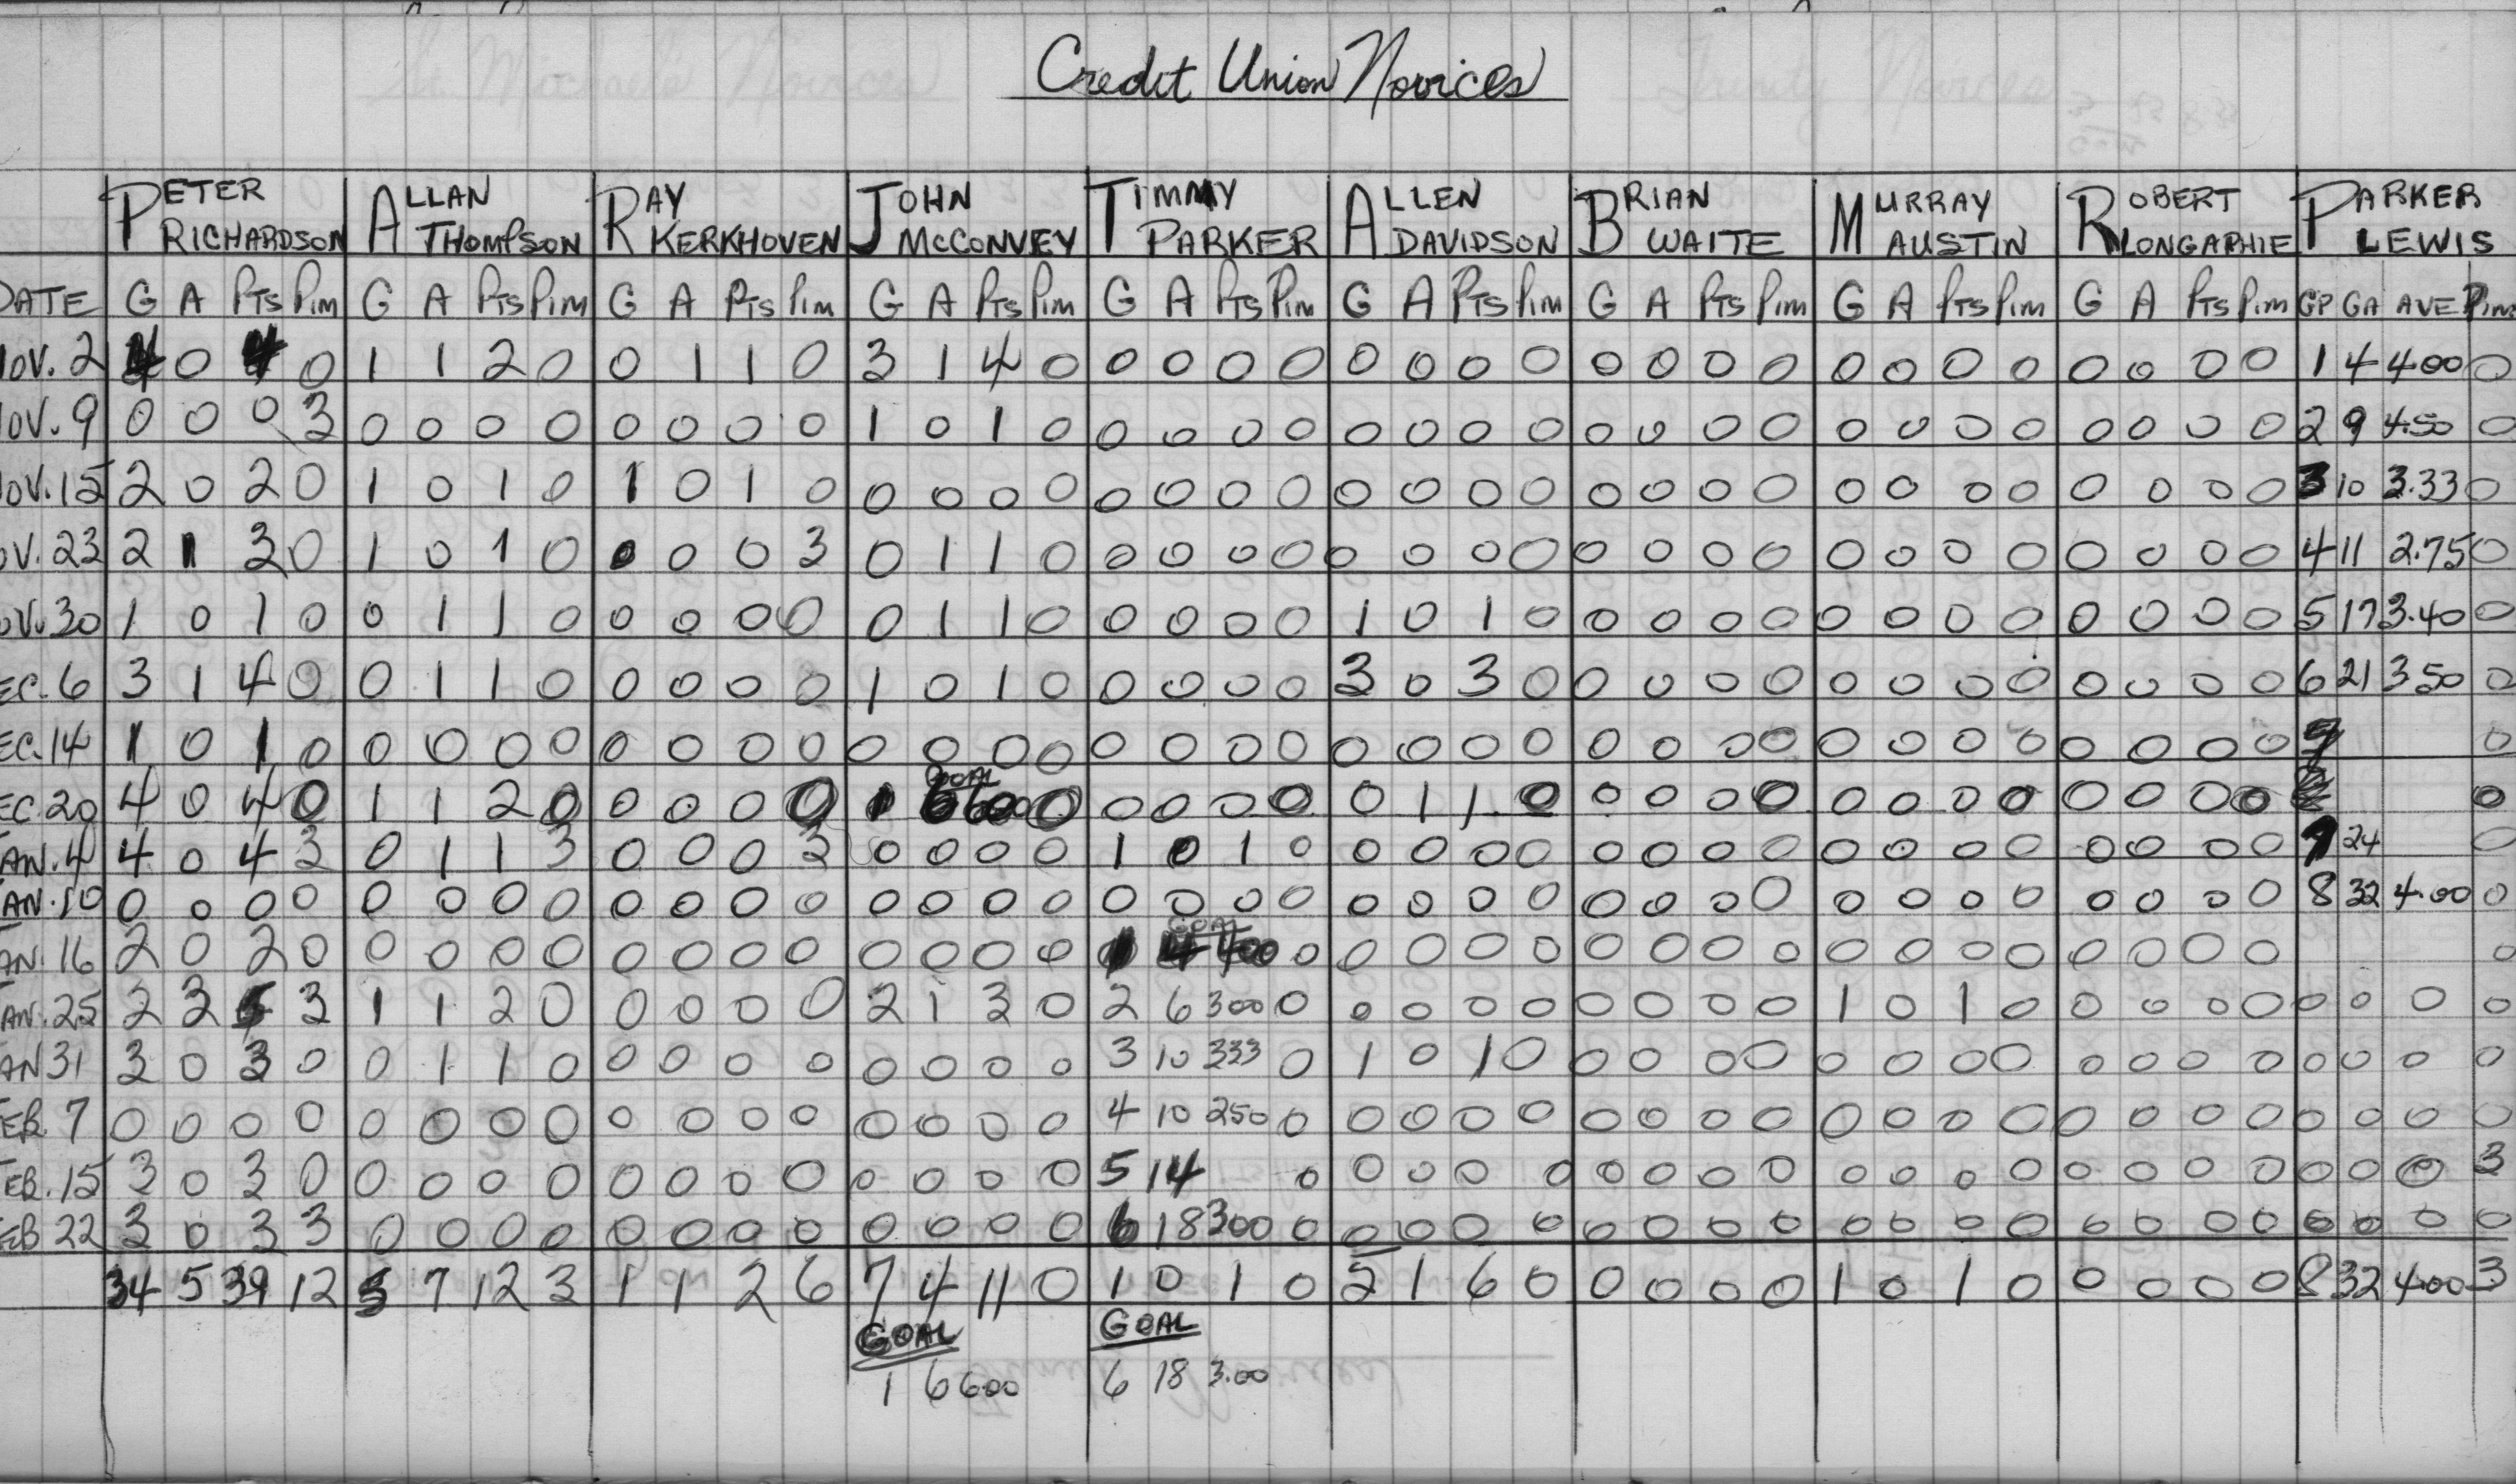 Credit Union Novices
PETER RICHARDSON ALLAN THOMPSON RAY KERKHOVEN JOHN McCONVEY TIMMY PARKER ALLEN DAVIDSON BRIAN WAITE MURRAY AUSTIN ROBERT LONGAPHIE PARKER LEWIS
DATE G A PTS PIM G A PTS PIM G A PTS PIM G A PTS PIM G A PTS PIM G A PTS PIM G A PTS PIM G A PTS PIM G A PTS PIM GP GA AVE PIM
NOV. 2 4 0 4 0 1 1 2 0 0 1 1 0 3 1 4 0 0 0 0 0 0 0 0 0 0 0 0 0 0 0 0 0 0 0 0 0 1 4 4.00 0
NOV. 9 0 0 0 3 0 0 0 0 0 0 0 0 1 0 1 0 0 0 0 0 0 0 0 0 0 0 0 0 0 0 0 0 0 0 0 0 2 9 4.50 0
NOV. 15 2 0 2 0 1 0 1 0 1 0 1 0 0 0 0 0 0 0 0 0 0 0 0 0 0 0 0 0 0 0 0 0 0 0 0 0 3 10 3.33 0
NOV. 23 2 1 3 0 1 0 1 0 0 0 0 3 0 1 1 0 0 0 0 0 0 0 0 0 0 0 0 0 0 0 0 0 0 0 0 0 4 11 2.75 0
NOV. 30 1 0 1 0 0 1 1 0 0 0 0 0 0 1 1 0 0 0 0 0 1 0 1 0 0 0 0 0 0 0 0 0 0 0 0 0 5 17 3.40 0
DEC. 6 3 1 4 0 0 1 1 0 0 0 0 0 1 0 1 0 0 0 0 0 3 0 3 0 0 0 0 0 0 0 0 0 0 0 0 0 6 21 3.50 0
DEC. 14 1 0 1 0 0 0 0 0 0 0 0 0 0 0 0 0 0 0 0 0 0 0 0 0 0 0 0 0 0 0 0 0 0 0 0 0 0
GOAL
DEC. 20 4 0 4 0 1 1 2 0 0 0 0 0 1 6 6.00 0 0 0 0 0 0 1 1 0 0 0 0 0 0 0 0 0 0 0 0 0 0
JAN. 4 4 0 4 3 0 1 1 3 0 0 0 3 0 0 0 0 1 0 1 0 0 0 0 0 0 0 0 0 0 0 0 0 0 0 0 0 7 24 0
JAN. 10 0 0 0 0 0 0 0 0 0 0 0 0 0 0 0 0 0 0 0 0 0 0 0 0 0 0 0 0 0 0 0 0 0 0 0 0 8 32 4.00 0
GOAL
JAN. 16 2 0 2 0 0 0 0 0 0 0 0 0 0 0 0 0 1 4 400 0 0 0 0 0 0 0 0 0 0 0 0 0 0 0 0 0 0
JAN. 25 2 3 5 3 1 1 2 0 0 0 0 0 2 1 3 0 2 6 300 0 0 0 0 0 0 0 0 0 1 0 1 0 0 0 0 0 0 0 0 0
JAN 31 3 0 3 0 0 1 1 0 0 0 0 0 0 0 0 0 3 10 333 0 1 0 1 0 0 0 0 0 0 0 0 0 0 0 0 0 0 0 0 0
FEB. 7 0 0 0 0 0 0 0 0 0 0 0 0 0 0 0 0 4 10 250 0 0 0 0 0 0 0 0 0 0 0 0 0 0 0 0 0 0 0 0 0
FEB. 15 3 0 3 0 0 0 0 0 0 0 0 0 0 0 0 0 5 14 0 0 0 0 0 0 0 0 0 0 0 0 0 0 0 0 0 0 0 0 3
FEB 22 3 0 3 3 0 0 0 0 0 0 0 0 0 0 0 0 6 18 300 0 0 0 0 0 0 0 0 0 0 0 0 0 0 0 0 0 0 0 0 0
34 5 39 12 5 7 12 3 1 1 2 6 7 4 11 0 1 0 1 0 5 1 6 0 0 0 0 0 1 0 1 0 0 0 0 0 8 32 4.00 3
GOAL GOAL
1 6 6.00 6 18 3.00